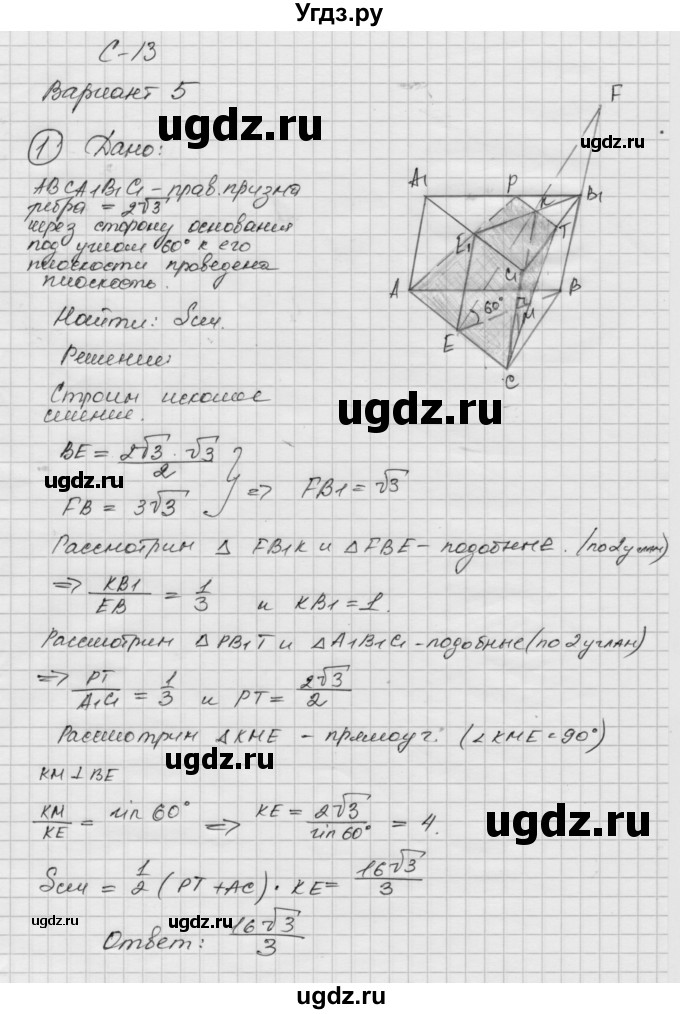 Угдз.ру
С-13
Вариант 5
ugdz.ru
1 Дано:
ABCA1B1C1 - прав. призма
ребра = 2√3
через сторону основания
под углом 60° к его
плоскости проведена
плоскость.
Найти: Sсеч.
Решение:
Строим искомое
сечение.
F
A1 P B1
K
E1 T
C1
A B
60° M
E
C
ugdz.ru
ugdz.ru
BE = 2√3 · √3 / 2
FB = 3√3
} => FB1 = √3
ugdz.ru
Рассмотрим Δ FB1K и Δ FBE - подобные. (по 2 углам)
=> KB1/EB = 1/3 и KB1 = 1.
ugdz.ru
Рассмотрим Δ PB1T и Δ A1B1C1 - подобные (по 2 углам)
=> PT/A1C1 = 1/3 и PT = 2√3/2
Рассмотрим Δ KME - прямоуг. (∠KME = 90°)
ugdz.ru
KM ⊥ BE
KM/KE = sin 60° => KE = 2√3/sin 60° = 4.
ugdz.ru
ugdz.ru
Sсеч = 1/2 (PT + AC) · KE = 16√3/3
ugdz.ru
ugdz.ru
Ответ: 16√3/3
ugdz.ru